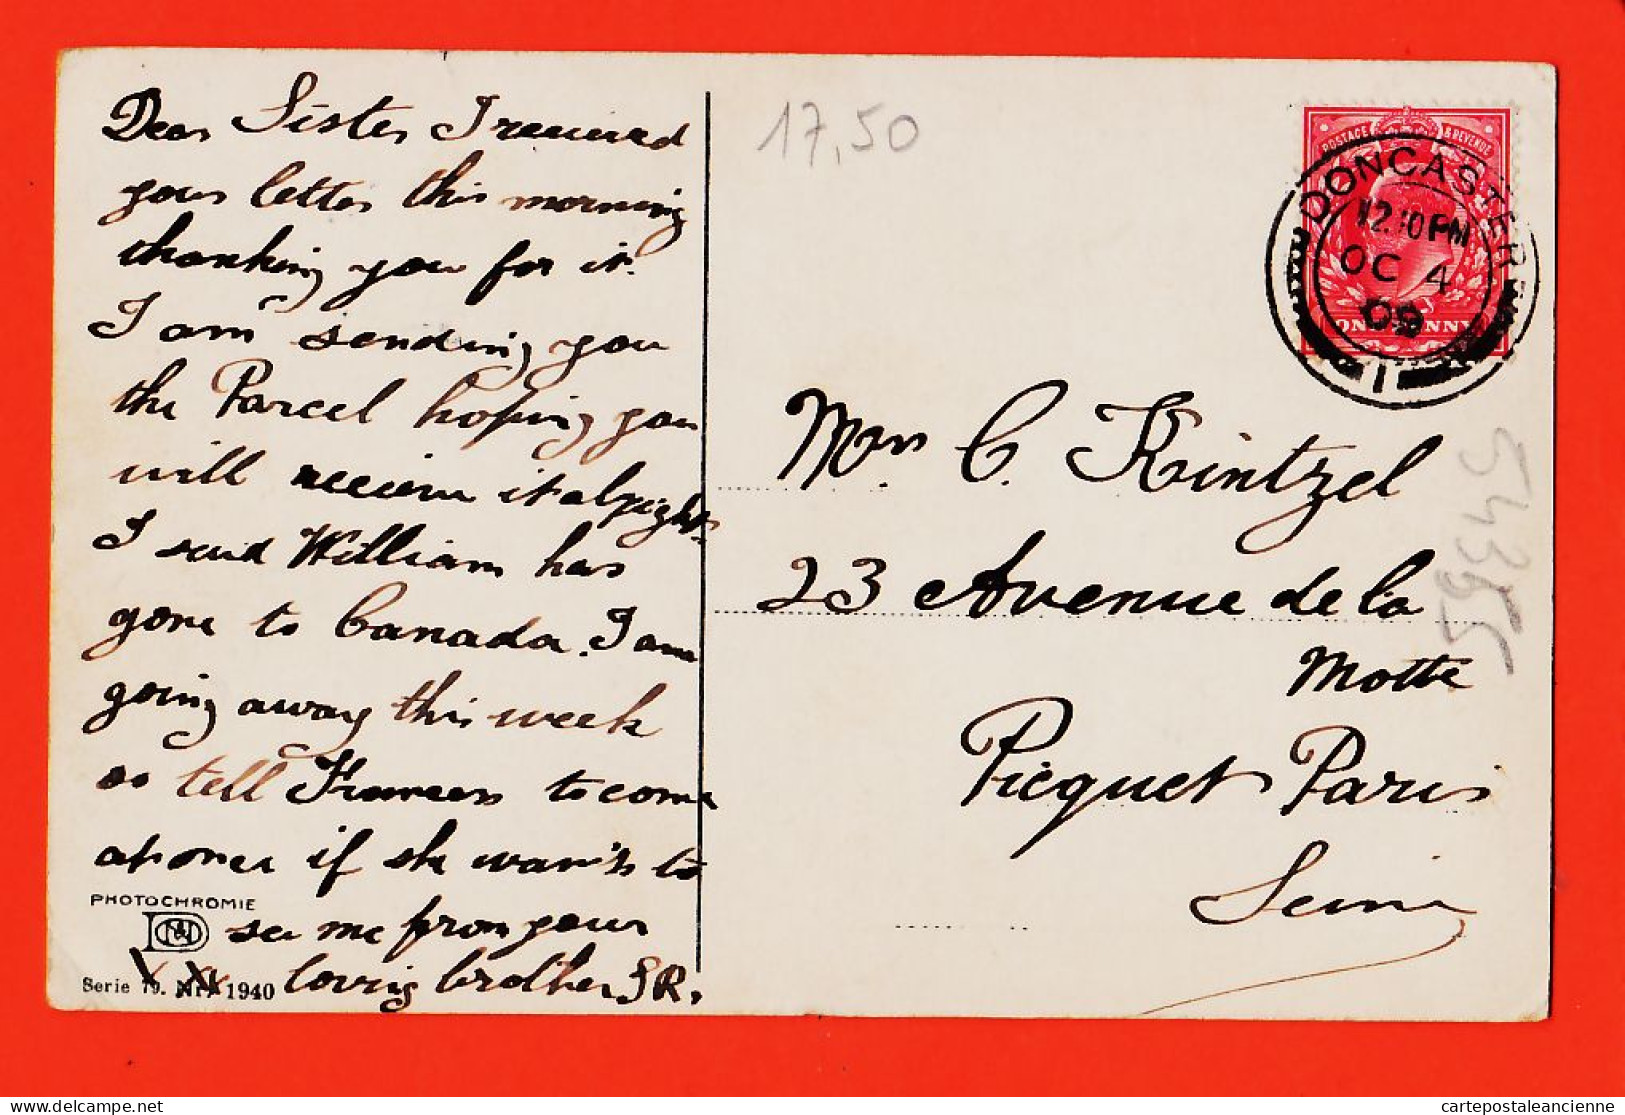 Dear Sister I received
your letter this morning
thanking you for it.
I am sending you
the Parcel hoping you
will receive it alright.
I said William has
gone to Canada. I am
going away this week
so tell Frances to come
at once if she wants to
see me from your
loving brother J R.
PHOTOCHROMIE
Serie 79. Nr. 1940
17,50
POSTAGE & REVENUE
ONE PENNY
DONCASTER
12.10 PM
OC 4
09
1
Mrs C. Kintzel
23 Avenue de la
Motte
Picquet Paris
Seine
cartepostaleancienne
delcampe.net